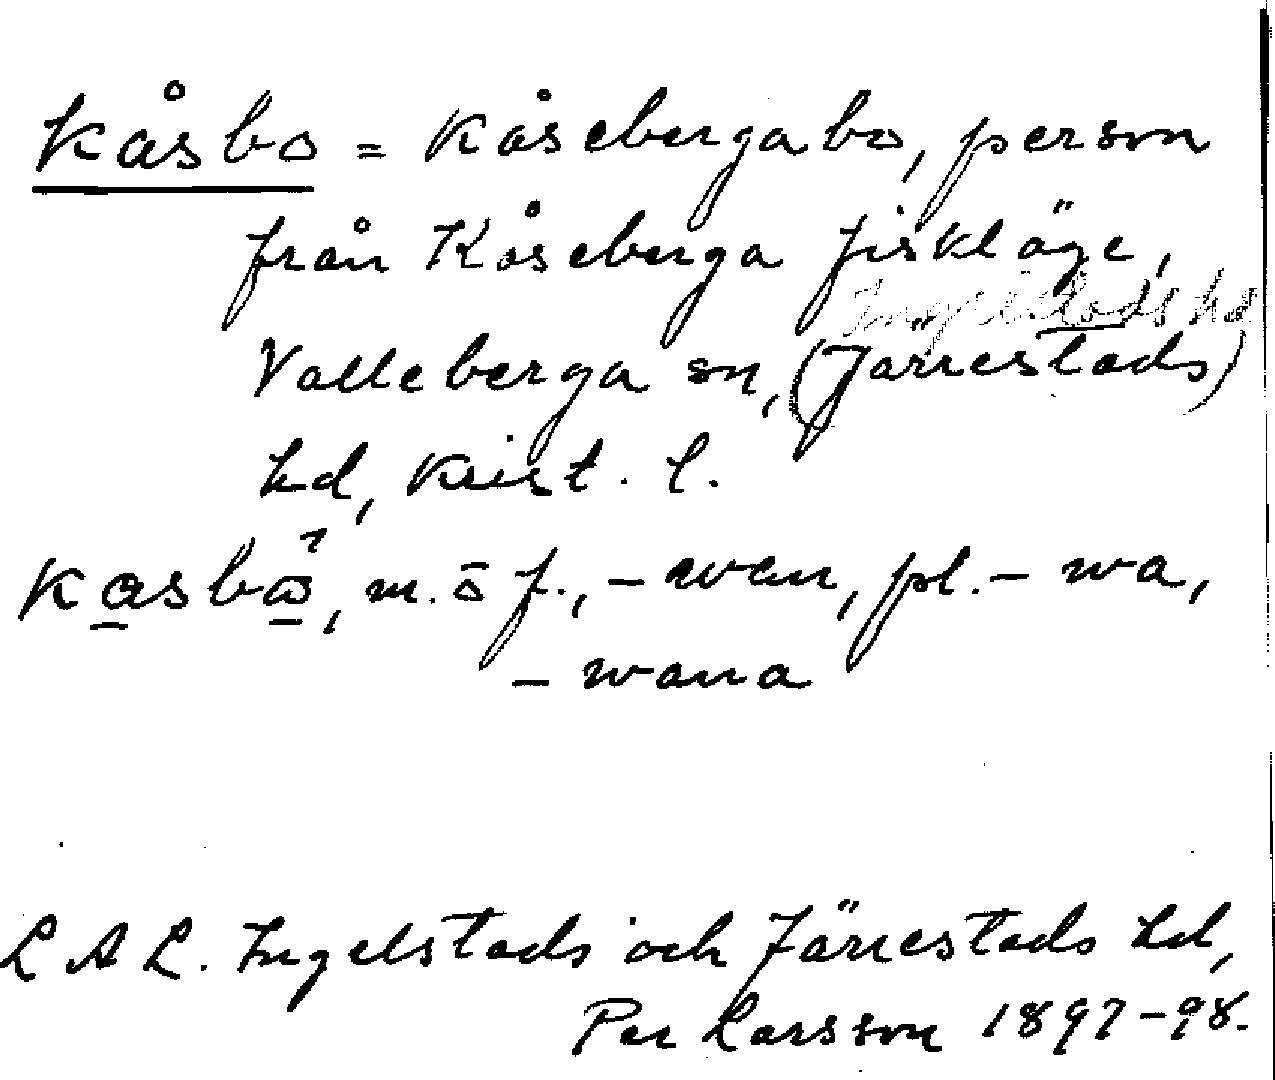 Kåsbo = Kåsebergabo, person
från Kåseberga fiskläge,
Ingelstads hd
Valleberga sn, (Järrestads)
hd, Krist. l.
kasbo, m. o f., – wan, pl. – wa,
– wana
L A L. Ingelstads och Järrestads hd,
Per Larsson 1897–98.